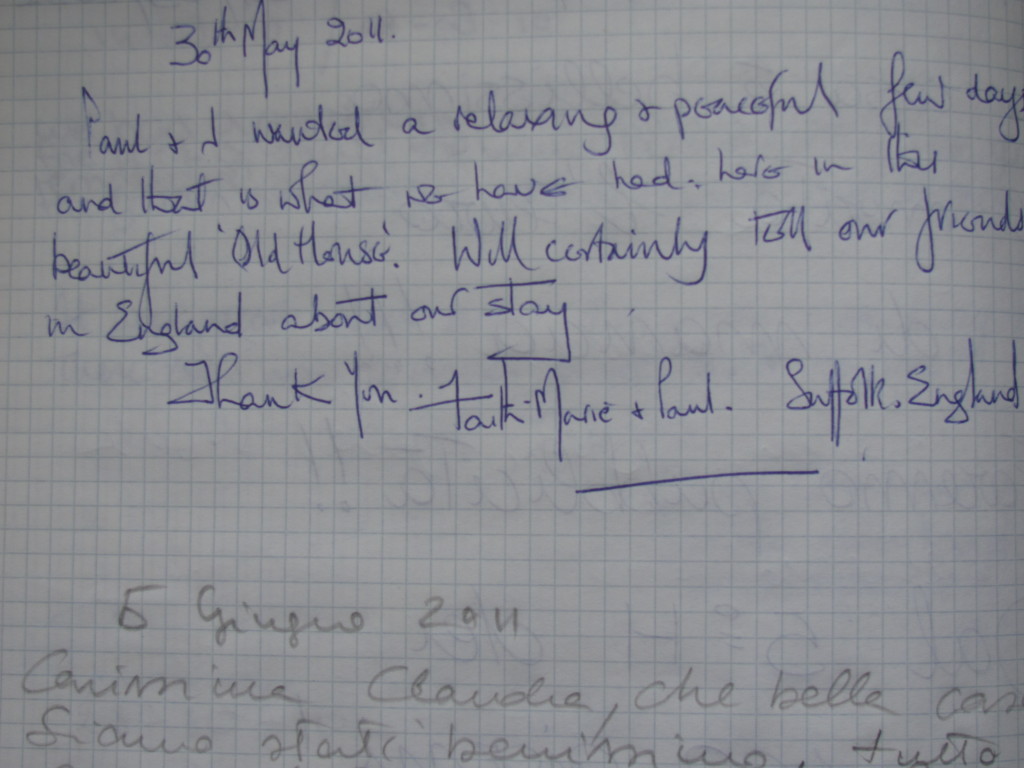 30th May 2011.
Paul & I wanted a relaxing & peaceful few days
and that is what we have had, here in this
beautiful 'Old House'. Will certainly tell our friends
in England about our stay
Thank you. Faith-Marie + Paul. Suffolk, England
5 Giugno 2011
Carissima Claudia, che bella casa
Siamo stati benissimo, tutto